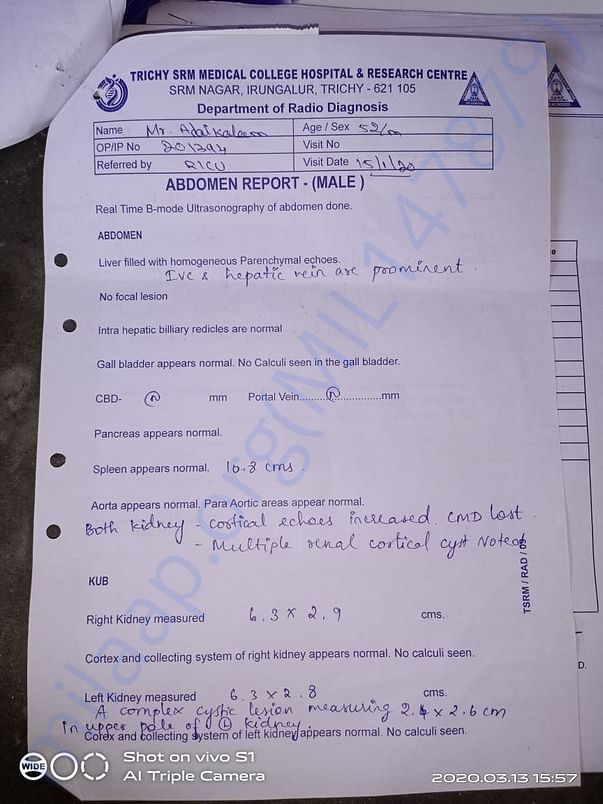 TRICHY SRM MEDICAL COLLEGE HOSPITAL & RESEARCH CENTRE
SRM NAGAR, IRUNGALUR, TRICHY - 621 105
Department of Radio Diagnosis
Name Mr. Adaikalam Age / Sex 52/m
OP/IP No Visit No
Referred by RICU Visit Date 15/1/20
ABDOMEN REPORT - (MALE )
Real Time B-mode Ultrasonography of abdomen done.
ABDOMEN
Liver filled with homogeneous Parenchymal echoes.
IVC & hepatic vein are prominent.
No focal lesion
Intra hepatic billiary redicles are normal
Gall bladder appears normal. No Calculi seen in the gall bladder.
CBD- (N) mm Portal Vein.......(N)...............mm
Pancreas appears normal.
Spleen appears normal. 10.8 cms.
Aorta appears normal. Para Aortic areas appear normal.
Both kidney - cortical echoes increased. CMD lost.
- Multiple renal cortical cyst Noted
KUB
TSRM / RAD /
Right Kidney measured 6.3 x 2.9 cms.
Cortex and collecting system of right kidney appears normal. No calculi seen.
Left Kidney measured 6.3 x 2.8 cms.
A complex cystic lesion measuring 2.4 x 2.6 cm
in upper pole of (L) kidney.
Corex and collecting system of left kidney appears normal. No calculi seen.
D.
milaap.org(MIL147879)
WIDE
Shot on vivo S1
AI Triple Camera
2020.03.13 15:57